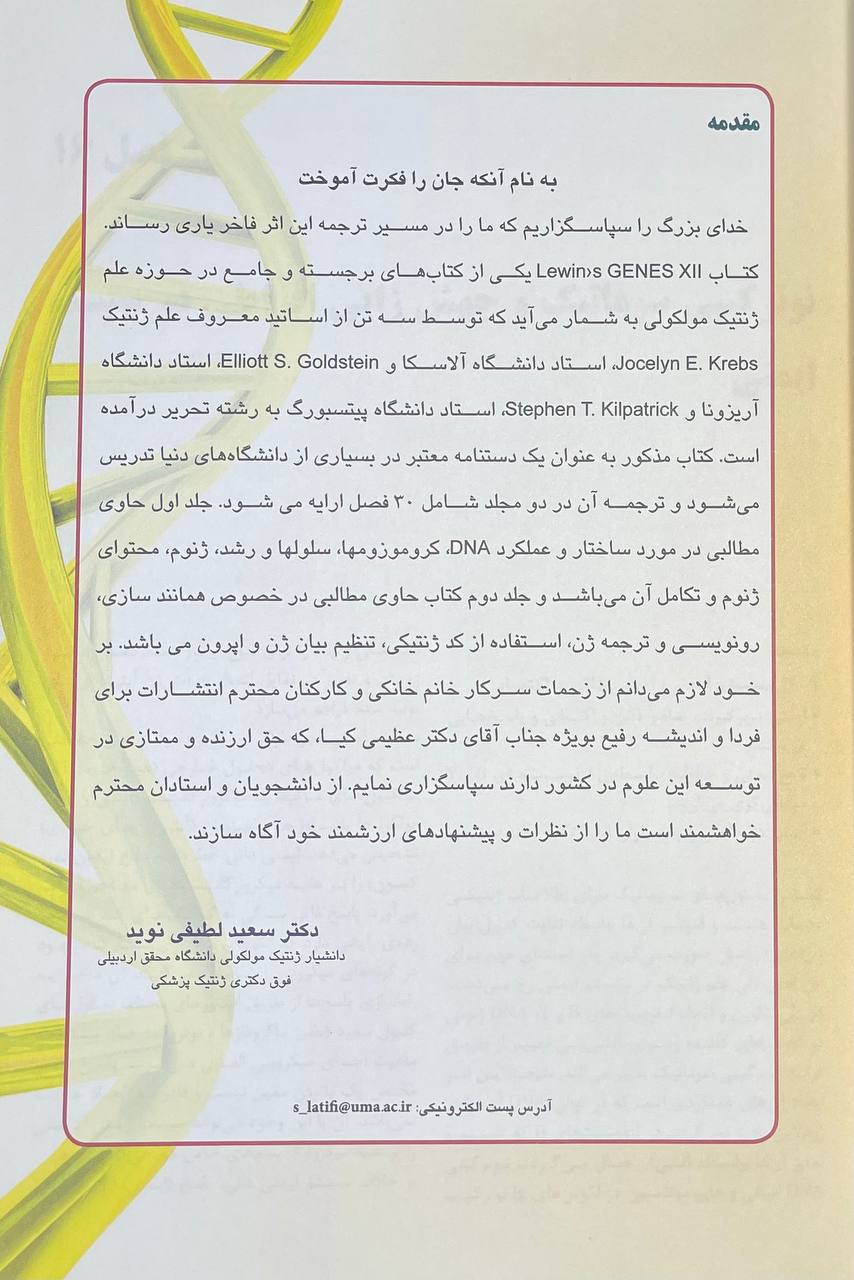 مقدمه
به نام آنکه جان را فکرت آموخت
خدای بزرگ را سپاسگزاریم که ما را در مسیر ترجمه این اثر فاخر یاری رساند.
کتاب Lewin›s GENES XII یکی از کتاب‌های برجسته و جامع در حوزه علم
ژنتیک مولکولی به شمار می‌آید که توسط سه تن از اساتید معروف علم ژنتیک
Jocelyn E. Krebs، استاد دانشگاه آلاسکا و Elliott S. Goldstein، استاد دانشگاه
آریزونا و Stephen T. Kilpatrick، استاد دانشگاه پیتسبورگ به رشته تحریر درآمده
است. کتاب مذکور به عنوان یک دستنامه معتبر در بسیاری از دانشگاه‌های دنیا تدریس
می‌شود و ترجمه آن در دو مجلد شامل ۳۰ فصل ارایه می شود. جلد اول حاوی
مطالبی در مورد ساختار و عملکرد DNA، کروموزومها، سلولها و رشد، ژنوم، محتوای
ژنوم و تکامل آن می‌باشد و جلد دوم کتاب حاوی مطالبی در خصوص همانند سازی،
رونویسی و ترجمه ژن، استفاده از کد ژنتیکی، تنظیم بیان ژن و اپرون می باشد. بر
خود لازم می‌دانم از زحمات سرکار خانم خانکی و کارکنان محترم انتشارات برای
فردا و اندیشه رفیع بویژه جناب آقای دکتر عظیمی کیا، که حق ارزنده و ممتازی در
توسعه این علوم در کشور دارند سپاسگزاری نمایم. از دانشجویان و استادان محترم
خواهشمند است ما را از نظرات و پیشنهادهای ارزشمند خود آگاه سازند.
دکتر سعید لطیفی نوید
دانشیار ژنتیک مولکولی دانشگاه محقق اردبیلی
فوق دکتری ژنتیک پزشکی
آدرس پست الکترونیکی: s_latifi@uma.ac.ir